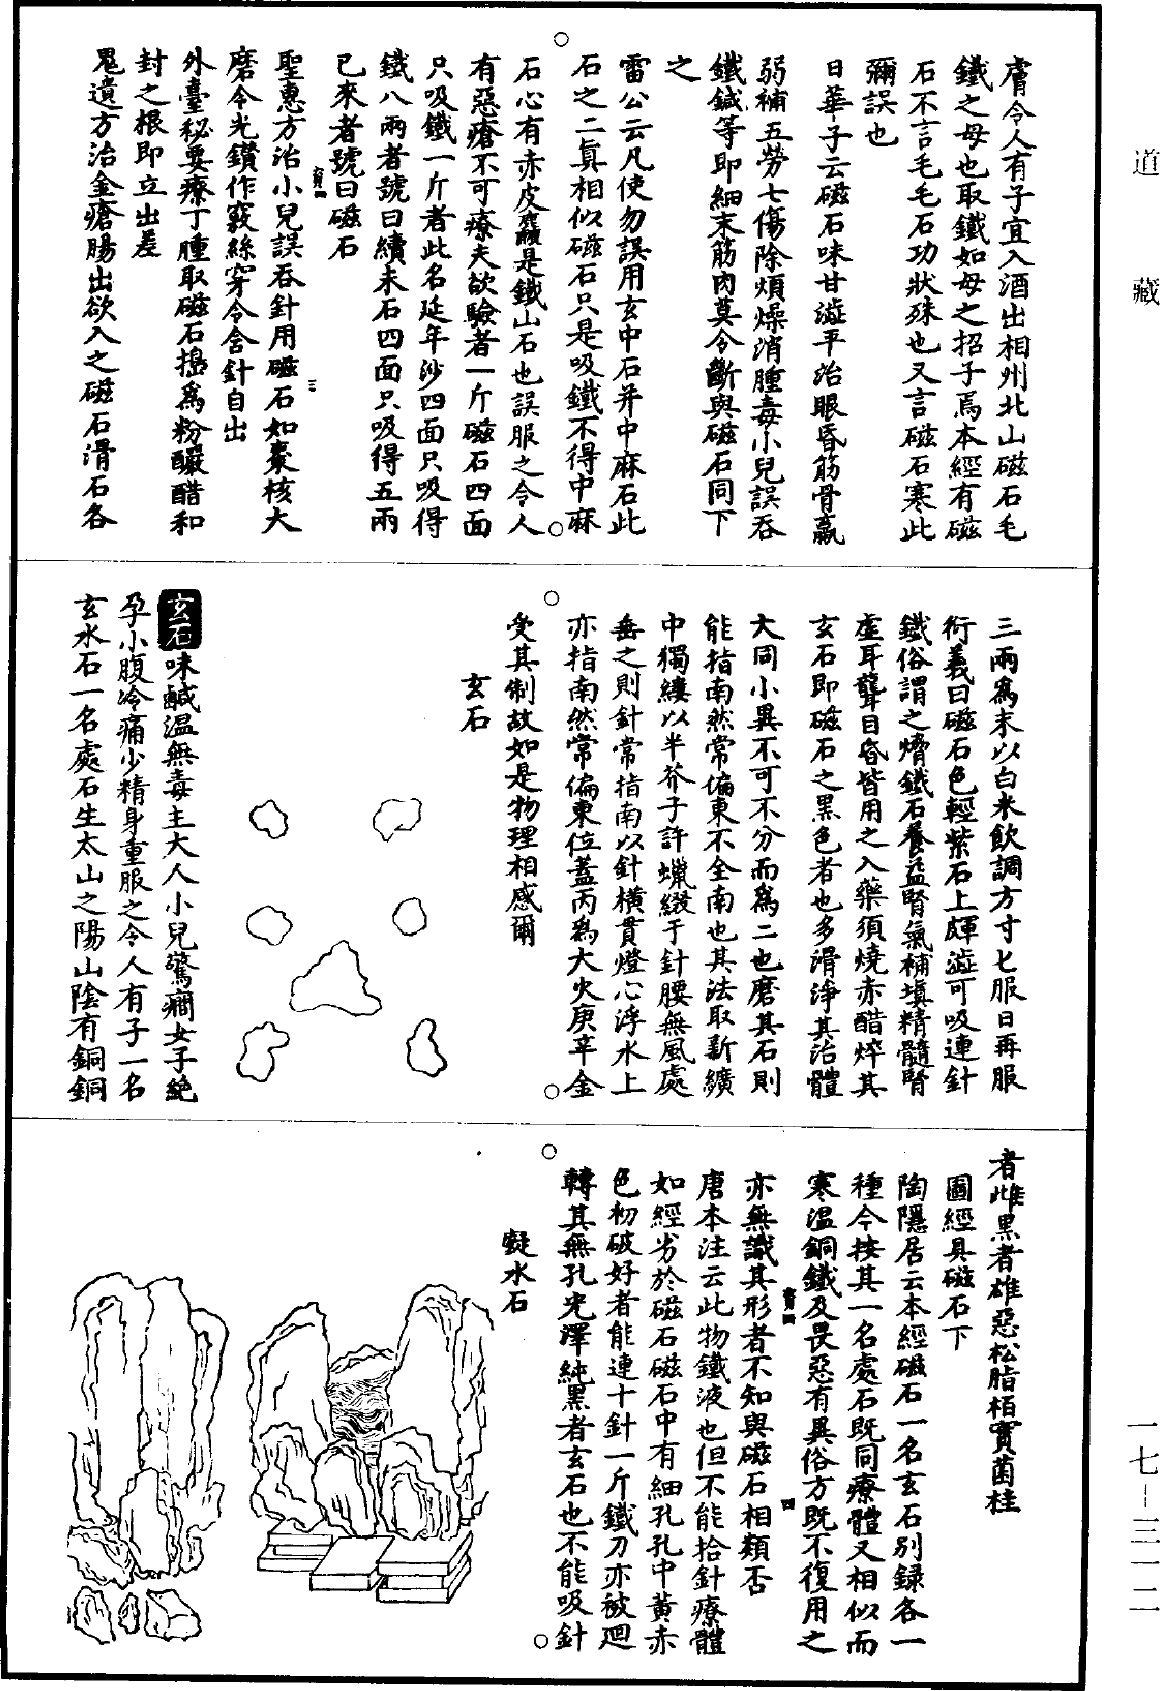 道藏
膚令人有子宜入酒出相州北山磁石毛
鐵之母也取鐵如母之招子焉本經有磁
石不言毛毛石功狀殊也又言磁石寒此
彌誤也
日華子云磁石味甘澁平治眼昏筋骨羸
弱補五勞七傷除煩燥消腫毒小兒誤吞
鐵鍼等即細末筋肉莫令斷與磁石同下
之
雷公云凡使勿誤用玄中石并中麻石此
石之二真相似磁石只是吸鐵不得中麻
石心有赤皮麤是鐵山石也誤服之令人
有惡瘡不可療夫欲驗者一斤磁石四面
只吸鐵一斤者此名延年沙四面只吸得
鐵八兩者號曰續未石四面只吸得五兩
已來者號曰磁石
聖惠方治小兒誤吞針用磁石如棗核大
磨令光鑽作竅絲穿令含針自出
外臺秘要療丁腫取磁石搗為粉釅醋和
封之根即立出差
鬼遺方治金瘡腸出欲入之磁石滑石各
三
三兩為末以白米飲調方寸匕服日再服
衍義曰磁石色輕紫石上皸澁可吸連針
鐵俗謂之熁鐵石養益腎氣補填精髓腎
虛耳聾目昏皆用之入藥須燒赤醋焠其
玄石即磁石之黑色者也多滑淨其治體
大同小異不可不分而為二也磨其石則
能指南然常偏東不全南也其法取新纊
中獨縷以半芥子許蠟綴于針腰無風處
垂之則針常指南以針橫貫燈心浮水上
亦指南然常偏東位蓋丙為大火庚辛金
受其制故如是物理相感爾
玄石
玄石味鹹溫無毒主大人小兒驚癇女子絶
孕小腹冷痛少精身重服之令人有子一名
玄水石一名處石生太山之陽山陰有銅銅
者雌黑者雄惡松脂栢實菌桂
圖經具磁石下
陶隱居云本經磁石一名玄石別録各一
種今按其一名處石既同療體又相似而
寒溫銅鐵及畏惡有異俗方既不復用之
亦無識其形者不知與磁石相類否
四
唐本注云此物鐵液也但不能拾針療體
如經劣於磁石磁石中有細孔孔中黃赤
色初破好者能連十針一斤鐵刀亦被迴
轉其無孔光澤純黑者玄石也不能吸針
凝水石
一七-三一二